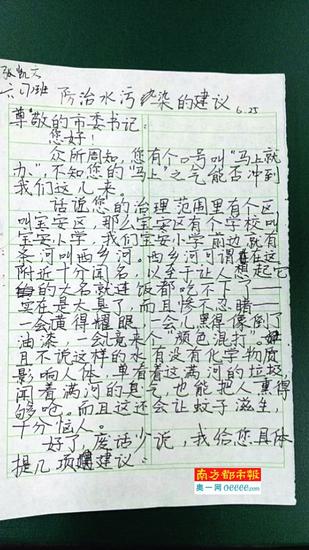 张凯六
六(3)班 防治水污染的建议
6.25
尊敬的市委书记:
您好!
众所周知,您有个口号叫“马上就
办”,不知您的“马上”之气能否冲到
我们这儿来。
话说您的治理范围里有个区
叫宝安区,那么宝安区有个学校叫
宝安小学,我们宝安小学前边就有
条河叫西乡河,西乡河可谓在这
附近十分闻名,以至于让人想起它
的大名就连饭都吃不下——
实在是大臭了,而且惨不忍睹——
一会黄得耀眼,一会儿黑得像倒了
油漆,一会竟来个颜色混打。
且不说这样的水有没有化学物质
影响人体,单看着这满河的垃圾,
闻着满河的臭气,也能把人熏得
够呛。而且这还会让蚊子滋生,
十分恼人。
好了,废话少说,我给您具体
提几项建议:
南方都市报
奥一网 oeeee.com